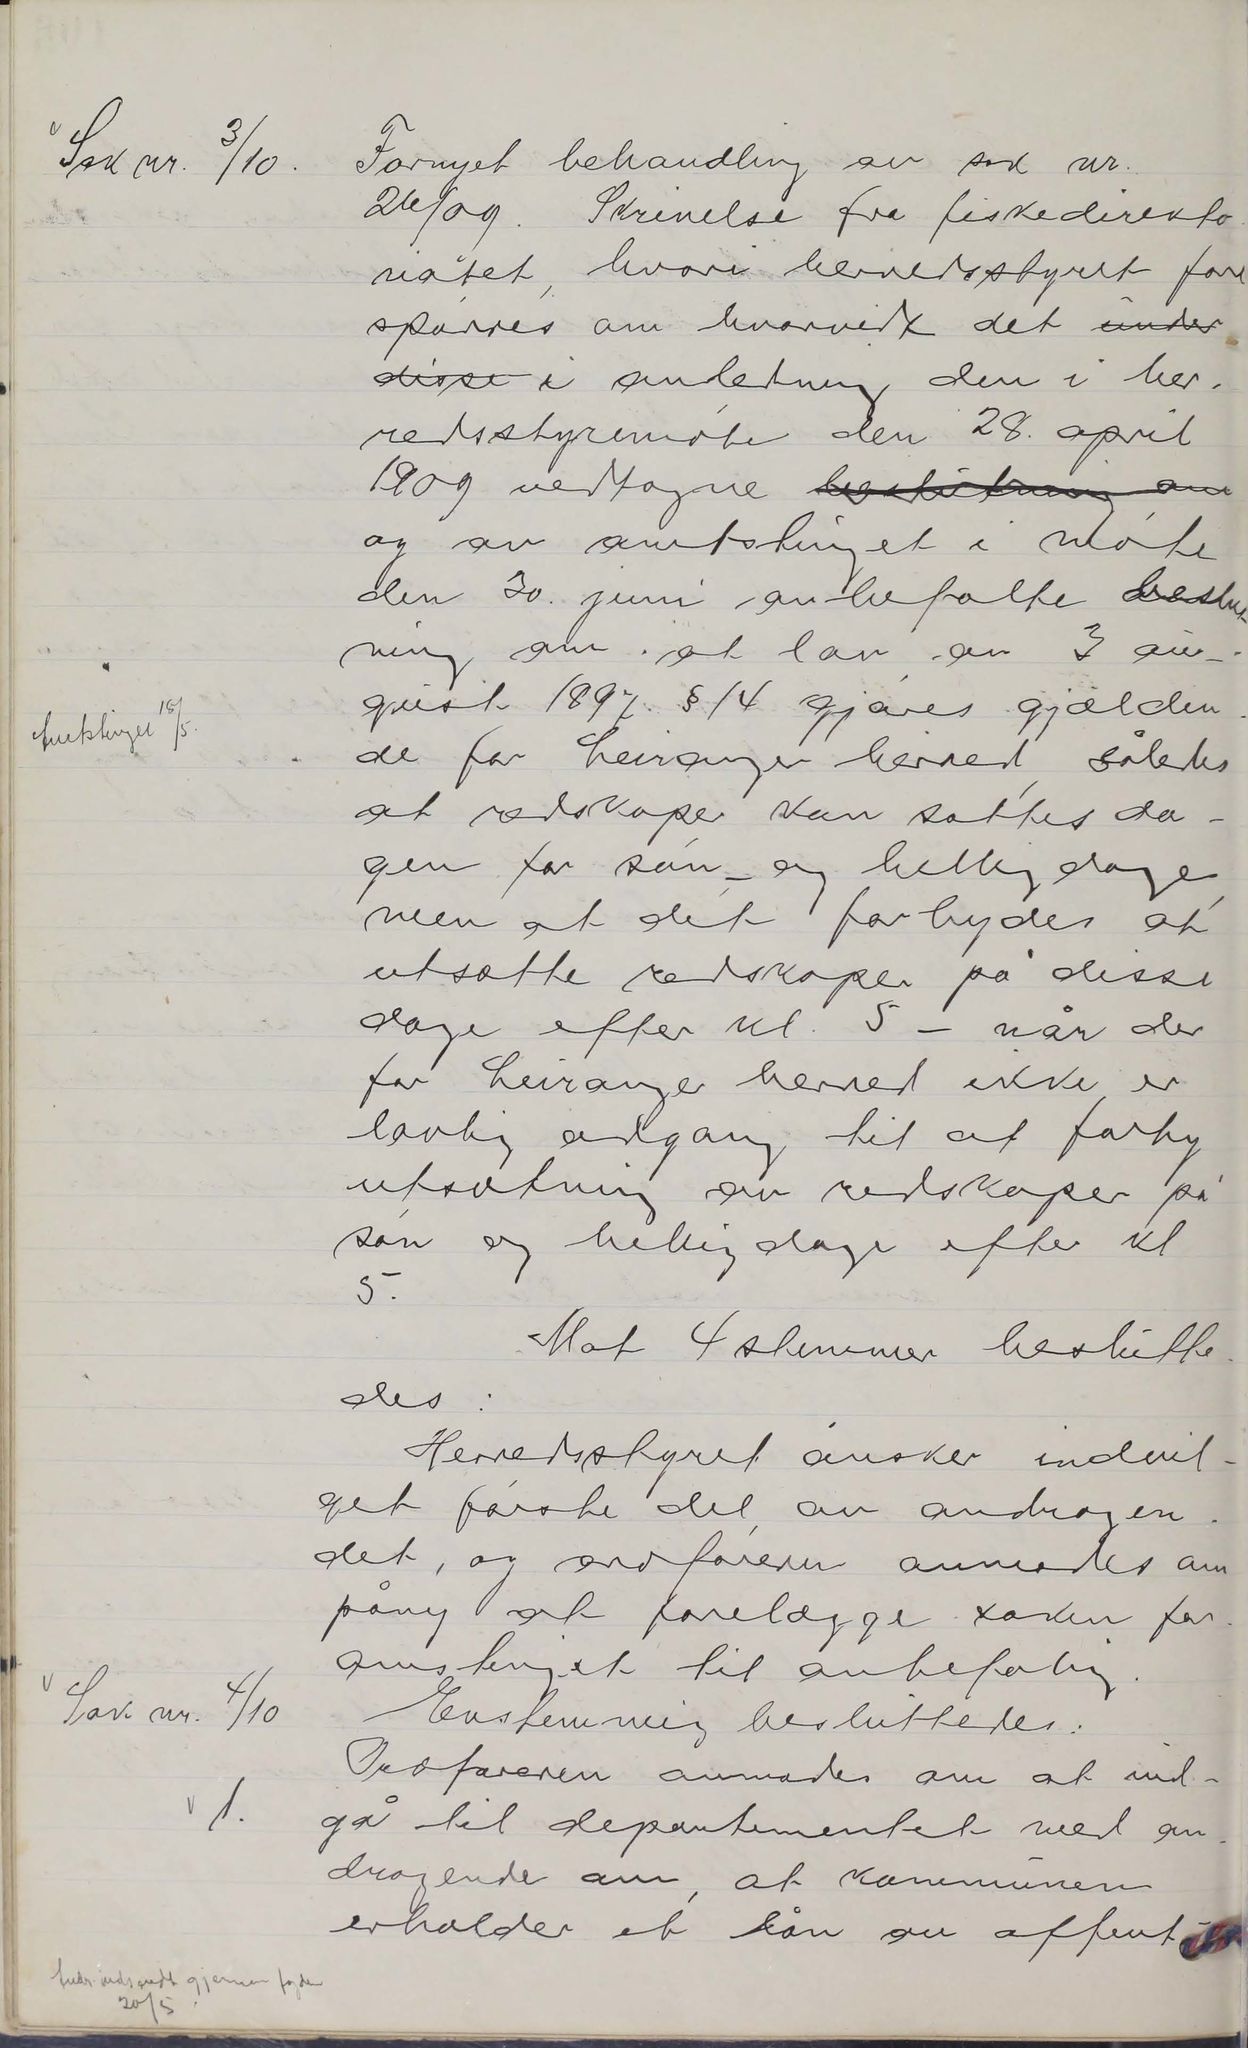 Sak nr. 3/10. Fornyet behandling av sak nr.
26/09. Skrivelse fra fiskedirekto
riatet, hvori herredsstyret fore
spörres om hvorvidt det under
disse i anledning den i her-
redsstyremöte den 28. april
1909 vedtagne beslutning om
og av amtstinget i möte
den 30. juni anbefalte beslut
ning om at lov av 3 au-
gust 1897 § 14 gjöres gjælden-
Amtstinget 18/5.
de for Leiranger herred, således
at redskaper kan sættes da-
gen för sön- og helligdage,
men at det forbydes at
utsætte redskaper på disse
dage efter kl. 5 - når der
for Leiranger herred ikke er
lovlig adgang til at forby
utsætning av redskaper på
sön og helligdage efter kl
5.
Mot 4 stemmer beslutte-
des :
Herredsstyret önsker indvil-
get förste del av andragen-
det, og ordföreren anmodes om
påny at forelægge saken for
amstinget til anbefaling.
Sak nr. 4/10 Enstemmig besluttedes:
Ordföreren anmodes om at ind-
1. gå til departementet med an-
dragende om, at kommunen
erholder et lån av offent
indsendt gjennem fogden
20/5.